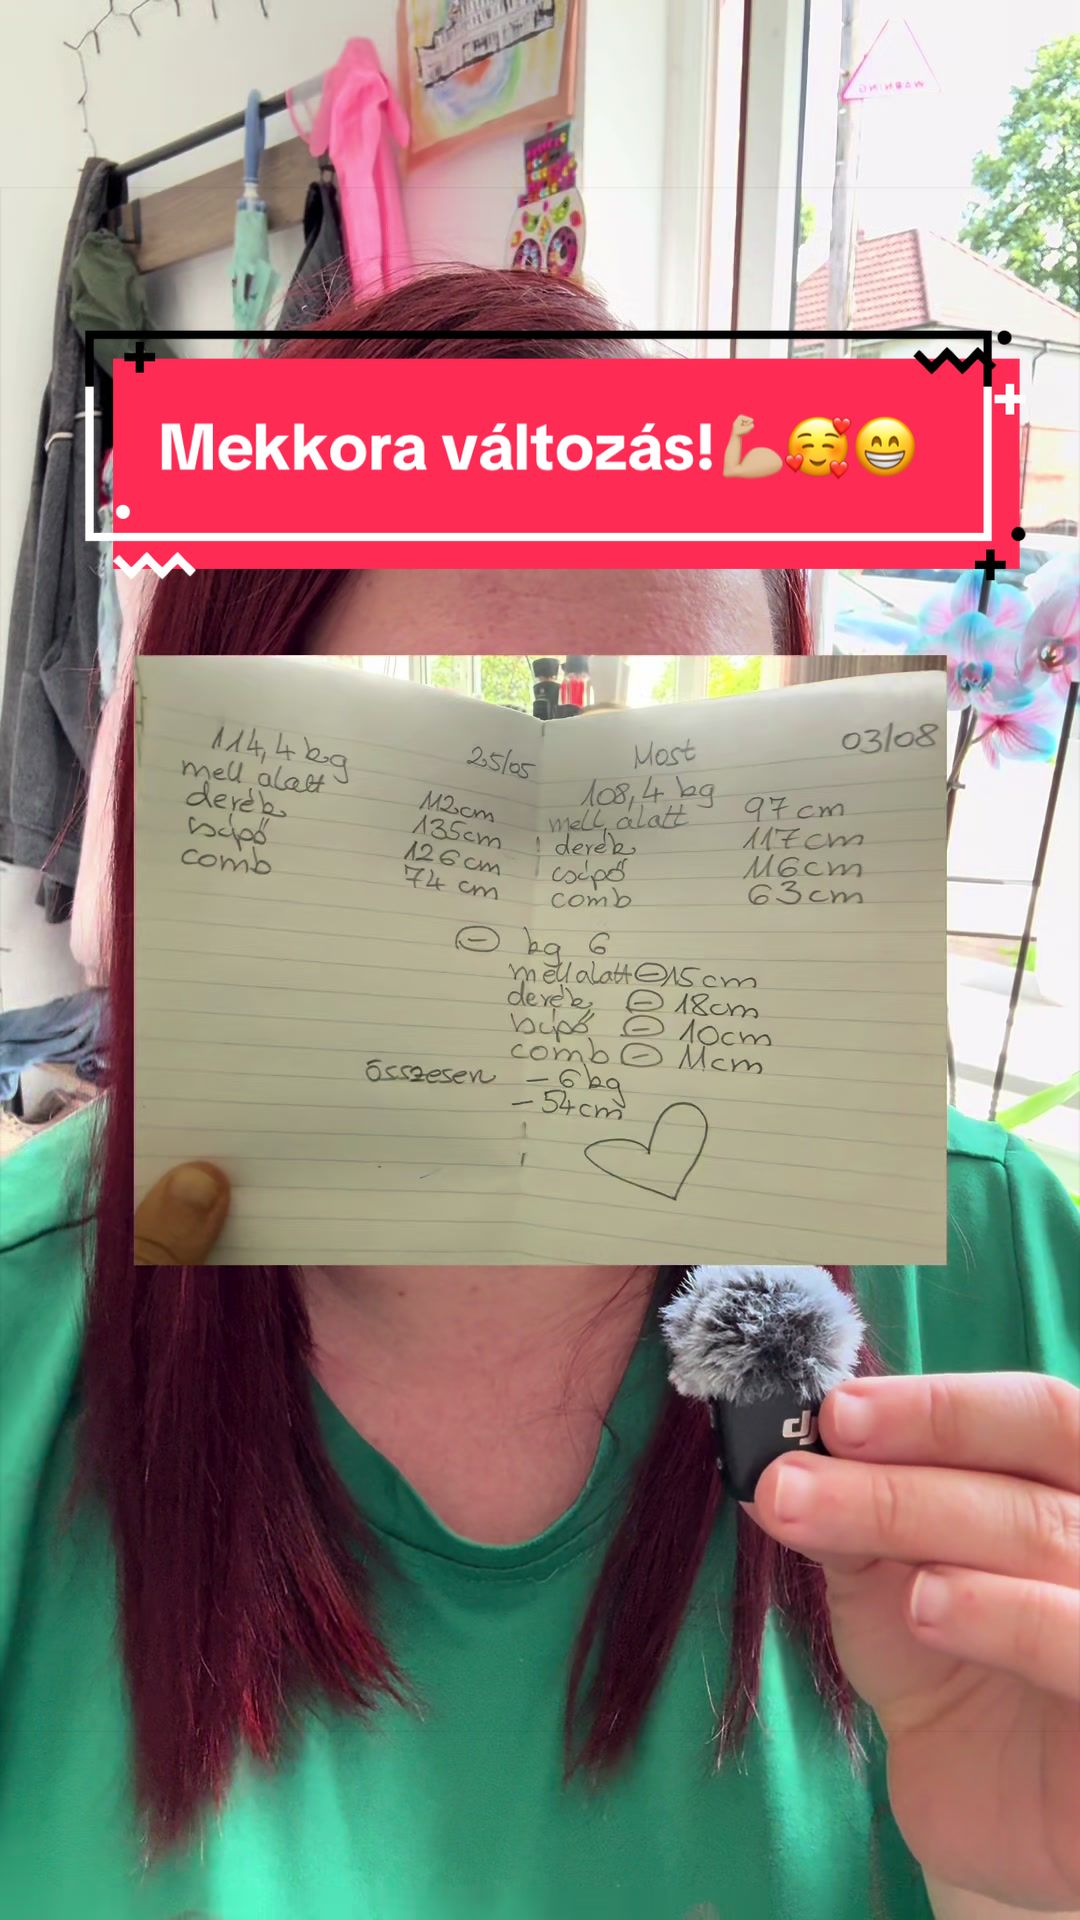 WARNING
Mekkora változás!💪🏼🥰😁
114,4 kg 25/05
mell alatt 112cm
derék 135cm
csípő 126cm
comb 74 cm
Most 03/08
108,4 kg
mell alatt 97cm
derék 117cm
csípő 116cm
comb 63cm
⊖ kg 6
mell alatt ⊖ 15cm
derék ⊖ 18cm
csípő ⊖ 10cm
comb ⊖ 11cm
összesen – 6kg
– 54cm
dji